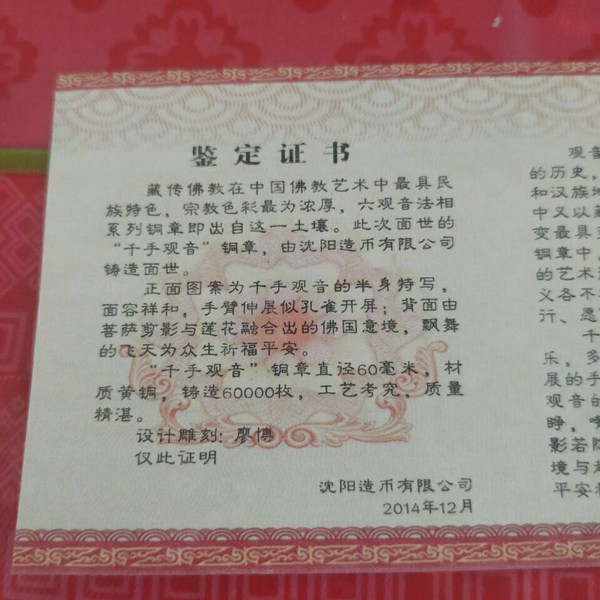 鉴定证书
藏传佛教在中国佛教艺术中最具民
族特色，宗教色彩最为浓厚，六观音法相
系列铜章即出自这一土壤。此次面世的
“千手观音”铜章，由沈阳造币有限公司
铸造面世。
正面图案为千手观音的半身特写，
面容祥和，手臂伸展似孔雀开屏；背面由
菩萨剪影与莲花融合出的佛国意境，飘舞
的飞天为众生祈福平安。
“千手观音”铜章直径60毫米，材
质黄铜，铸造60000枚，工艺考究，质量
精湛。
设计雕刻：廖博
仅此证明
沈阳造币有限公司
2014年12月
观音
的历史，
和汉族地
中又以藏
变最具多
铜章中，
的艺术形
义各不
行、愿
千
乐，多
展的手
观音的
睁，嘴
影若隐
境与
平安